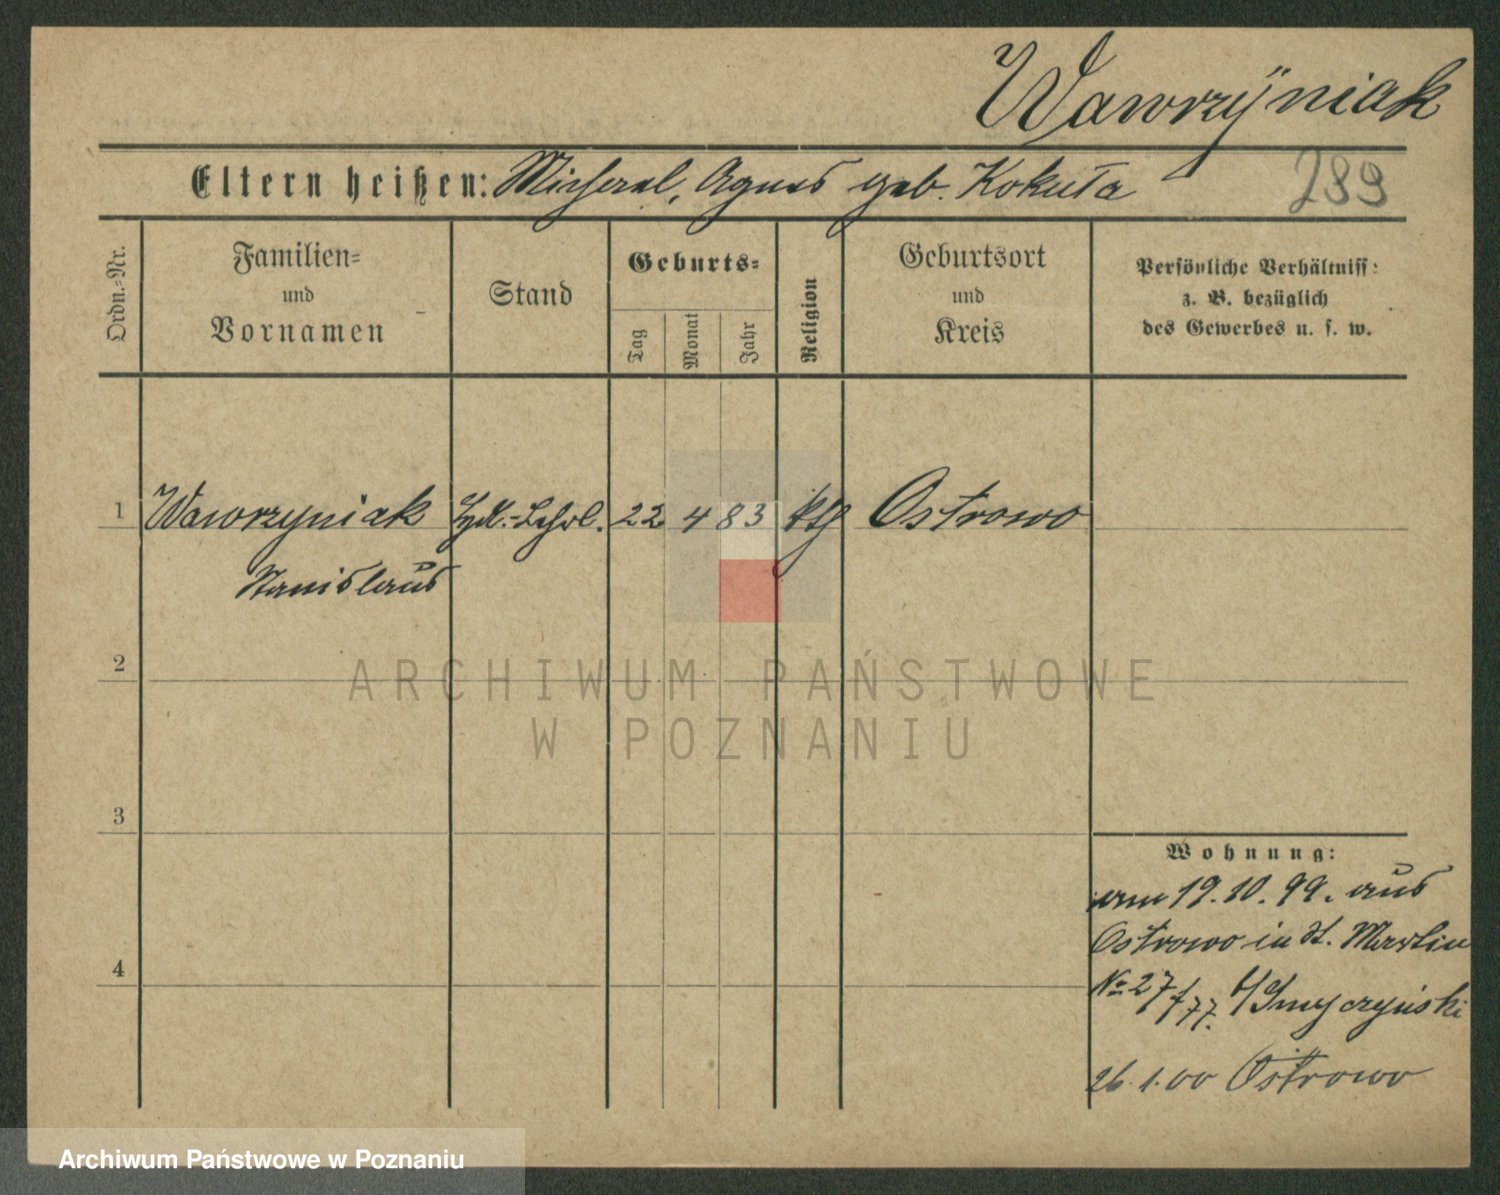 Wawrzÿniak
Eltern heißen: Michael, Agnes geb. Kokuła
289
Ordn.-Nr.
Familien-
und
Vornamen
Stand
Geburts-
Tag
Monat
Jahr
Religion
Geburtsort
und
Kreis
Persönliche Verhältniss:
z. B. bezüglich
des Gewerbes u. s. w.
1 Wawrzyniak 22 4 83 kth Ostrowo
Stanislaus
2
3
4
ARCHIWUM PAŃSTWOWE
W POZNANIU
Wohnung:
am 19.10.99. aus
Ostrowo in St. Martin
No 27
26.1.00 Ostrowo
Archiwum Państwowe w Poznaniu